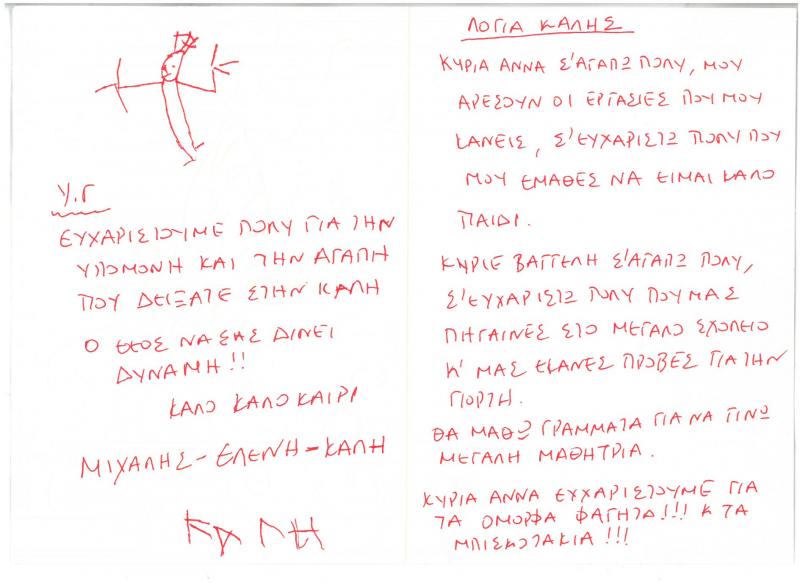 ΛΟΓΙΑ ΚΑΛΗΣ
ΚΥΡΙΑ ΑΝΝΑ Σ'ΑΓΑΠΩ ΠΟΛΥ, ΜΟΥ
ΑΡΕΣΟΥΝ ΟΙ ΕΡΓΑΣΙΕΣ ΠΟΥ ΜΟΥ
ΚΑΝΕΙΣ, Σ'ΕΥΧΑΡΙΣΤΩ ΠΟΛΥ ΠΟΥ
ΜΟΥ ΕΜΑΘΕΣ ΝΑ ΕΙΜΑΙ ΚΑΛΟ
ΠΑΙΔΙ.
ΚΥΡΙΕ ΒΑΓΓΕΛΗ Σ'ΑΓΑΠΩ ΠΟΛΥ,
Σ'ΕΥΧΑΡΙΣΤΩ ΠΟΛΥ ΠΟΥ ΜΑΣ
ΠΗΓΑΙΝΕΣ ΣΤΟ ΜΕΓΑΛΟ ΣΧΟΛΕΙΟ
Κ' ΜΑΣ ΕΚΑΝΕΣ ΠΡΟΒΕΣ ΓΙΑ ΤΗΝ
ΓΙΟΡΤΗ.
ΘΑ ΜΑΘΩ ΓΡΑΜΜΑΤΑ ΓΙΑ ΝΑ ΓΙΝΩ
ΜΕΓΑΛΗ ΜΑΘΗΤΡΙΑ.
ΚΥΡΙΑ ΑΝΝΑ ΕΥΧΑΡΙΣΤΟΥΜΕ ΓΙΑ
ΤΑ ΟΜΟΡΦΑ ΦΑΓΗΤΑ!!! Κ ΤΑ
ΜΠΙΣΚΟΤΑΚΙΑ!!!
Υ.Γ
ΕΥΧΑΡΙΣΤΟΥΜΕ ΠΟΛΥ ΓΙΑ ΤΗΝ
ΥΠΟΜΟΝΗ ΚΑΙ ΤΗΝ ΑΓΑΠΗ
ΠΟΥ ΔΕΙΞΑΤΕ ΣΤΗΝ ΚΑΛΗ
Ο ΘΕΟΣ ΝΑ ΣΑΣ ΔΙΝΕΙ
ΔΥΝΑΜΗ!!
ΚΑΛΟ ΚΑΛΟΚΑΙΡΙ
ΜΙΧΑΛΗΣ-ΕΛΕΝΗ-ΚΑΛΗ
ΚΑΛΗ